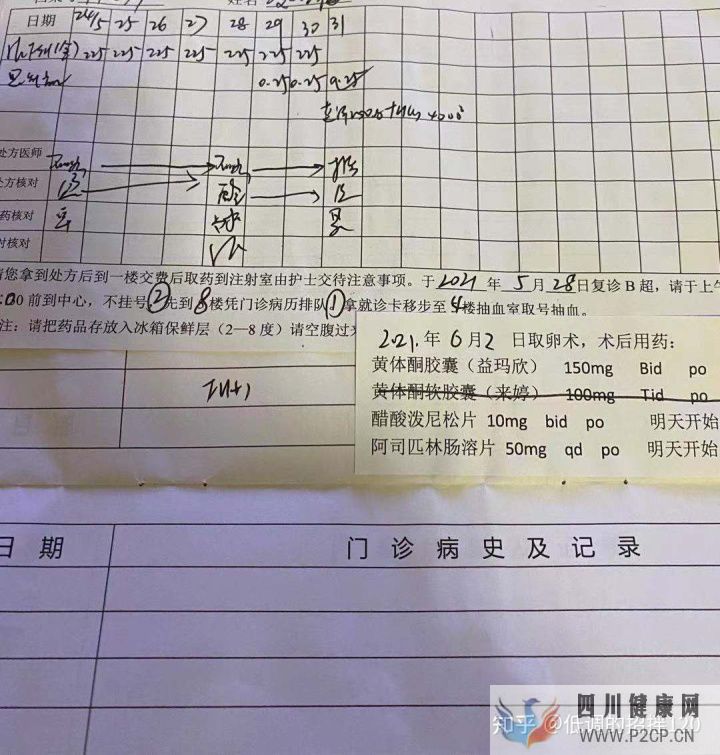 姓名
日期 24/5 25 26 27 28 29 30 31
225 225 225 225 225 225 225
0.25 0.25 0.25
处方医师
处方核对
药核对
对核对
请您拿到处方后到一楼交费后取药到注射室由护士交待注意事项。于 2021 年 5 月 28 日复诊 B 超，请于上午
:00 前到中心，不挂号②先到 8 楼凭门诊病历排队①拿就诊卡移步至 4 楼抽血室取号抽血。
注：请把药品存放入冰箱保鲜层（2—8 度）请空腹过来
2021.年 6 月 2 日取卵术，术后用药：
黄体酮胶囊（益玛欣） 150mg Bid po
黄体酮软胶囊（来婷） 100mg Tid po
醋酸泼尼松片 10mg bid po 明天开始
阿司匹林肠溶片 50mg qd po 明天开始
日 期 门 诊 病 史 及 记 录
四川健康网
知乎 @低调的招摇120
WWW.P2CP.CN